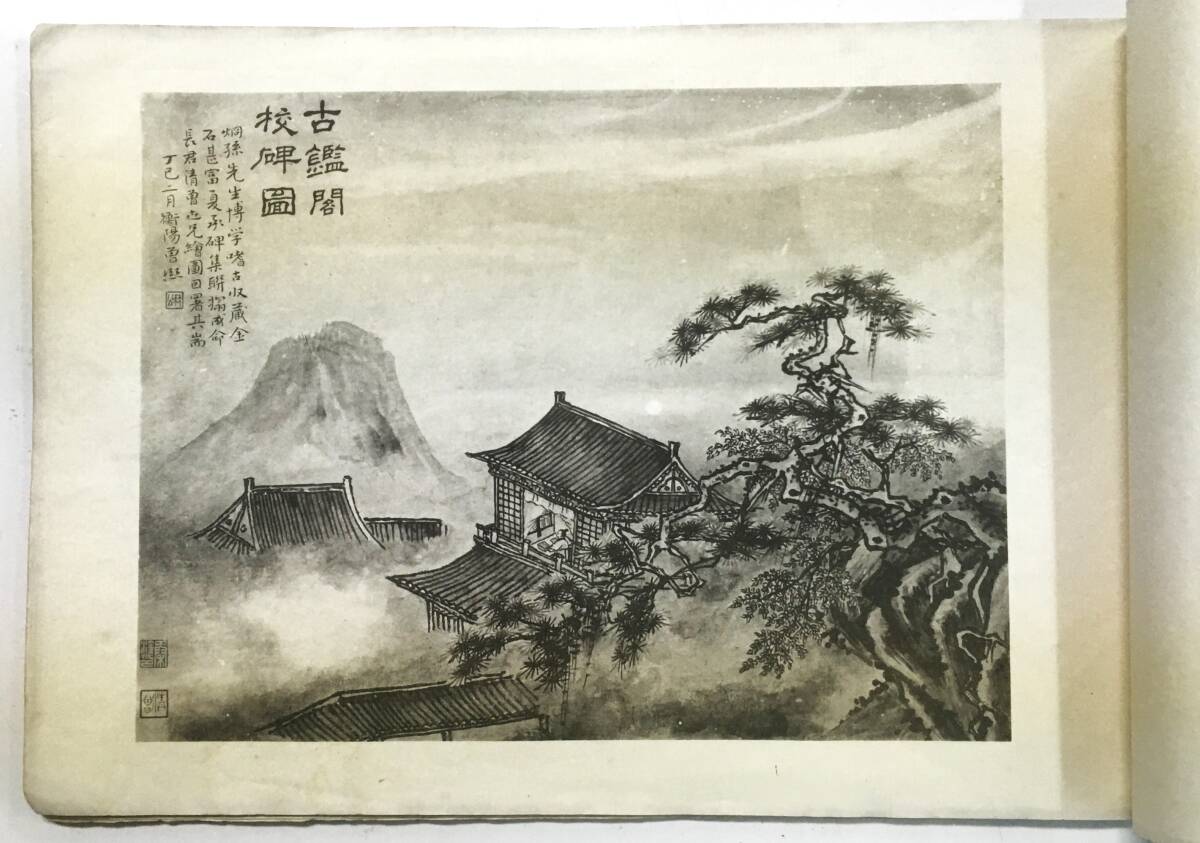 古鑑閣
校碑圖
烱孫先生博学嗜古收藏金
石甚富夏承碑集聯搨成命
長君清曾也兄繪圖因署其耑
丁巳二月衡陽曾熙